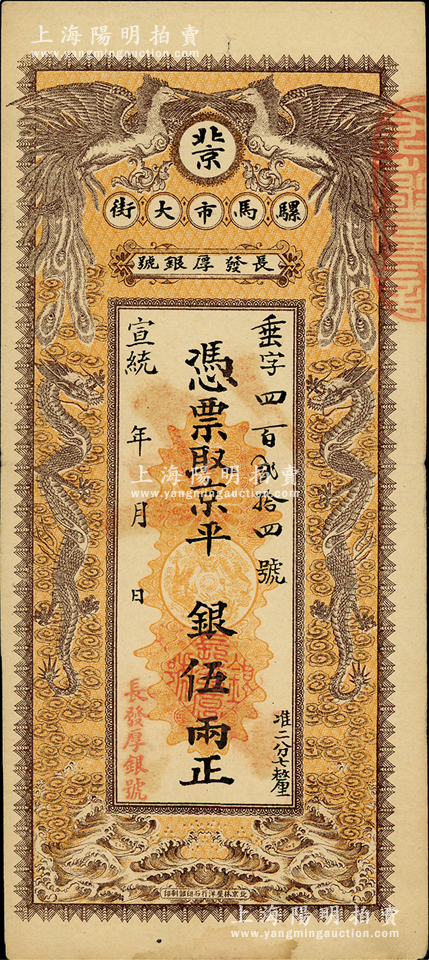 上海陽明拍賣
www.yangmingauction.com
北京
騾馬市大街
長發厚銀號
垂字四百貳拾四號
憑票取京平銀伍兩正
准二分七釐
宣統 年 月 日
長發厚銀號
上海陽明拍賣
www.yangmingauction.com
上海陽明拍賣
www.yangmingauction.com